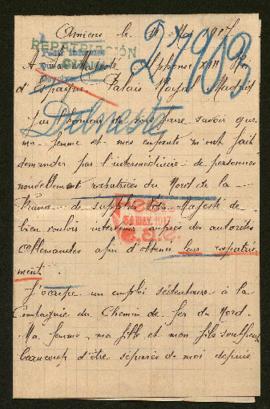 Amiens le Mai 1917
REPATRIACIÓN
24903
A Sa Majesté Alphonse XIII Roi
d'Espagne Palais Royal Madrid
Delvaste
J'ai l'honneur de vous faire savoir que
ma femme et mes enfants m'ont fait
demander par l'intermédiaire de personnes
nouvellement rapatriées du Nord de la
France de supplier votre Majesté de
bien vouloir intervenir auprès des autorités
Allemandes afin d'obtenir leur rapatrie
MAY. 1917
ment.
J'occupe un emploi sédentaire à la
Compagnie du Chemin de fer du Nord.
Ma femme, ma fille et mon fils souffrent
beaucoup d'être séparés de moi depuis